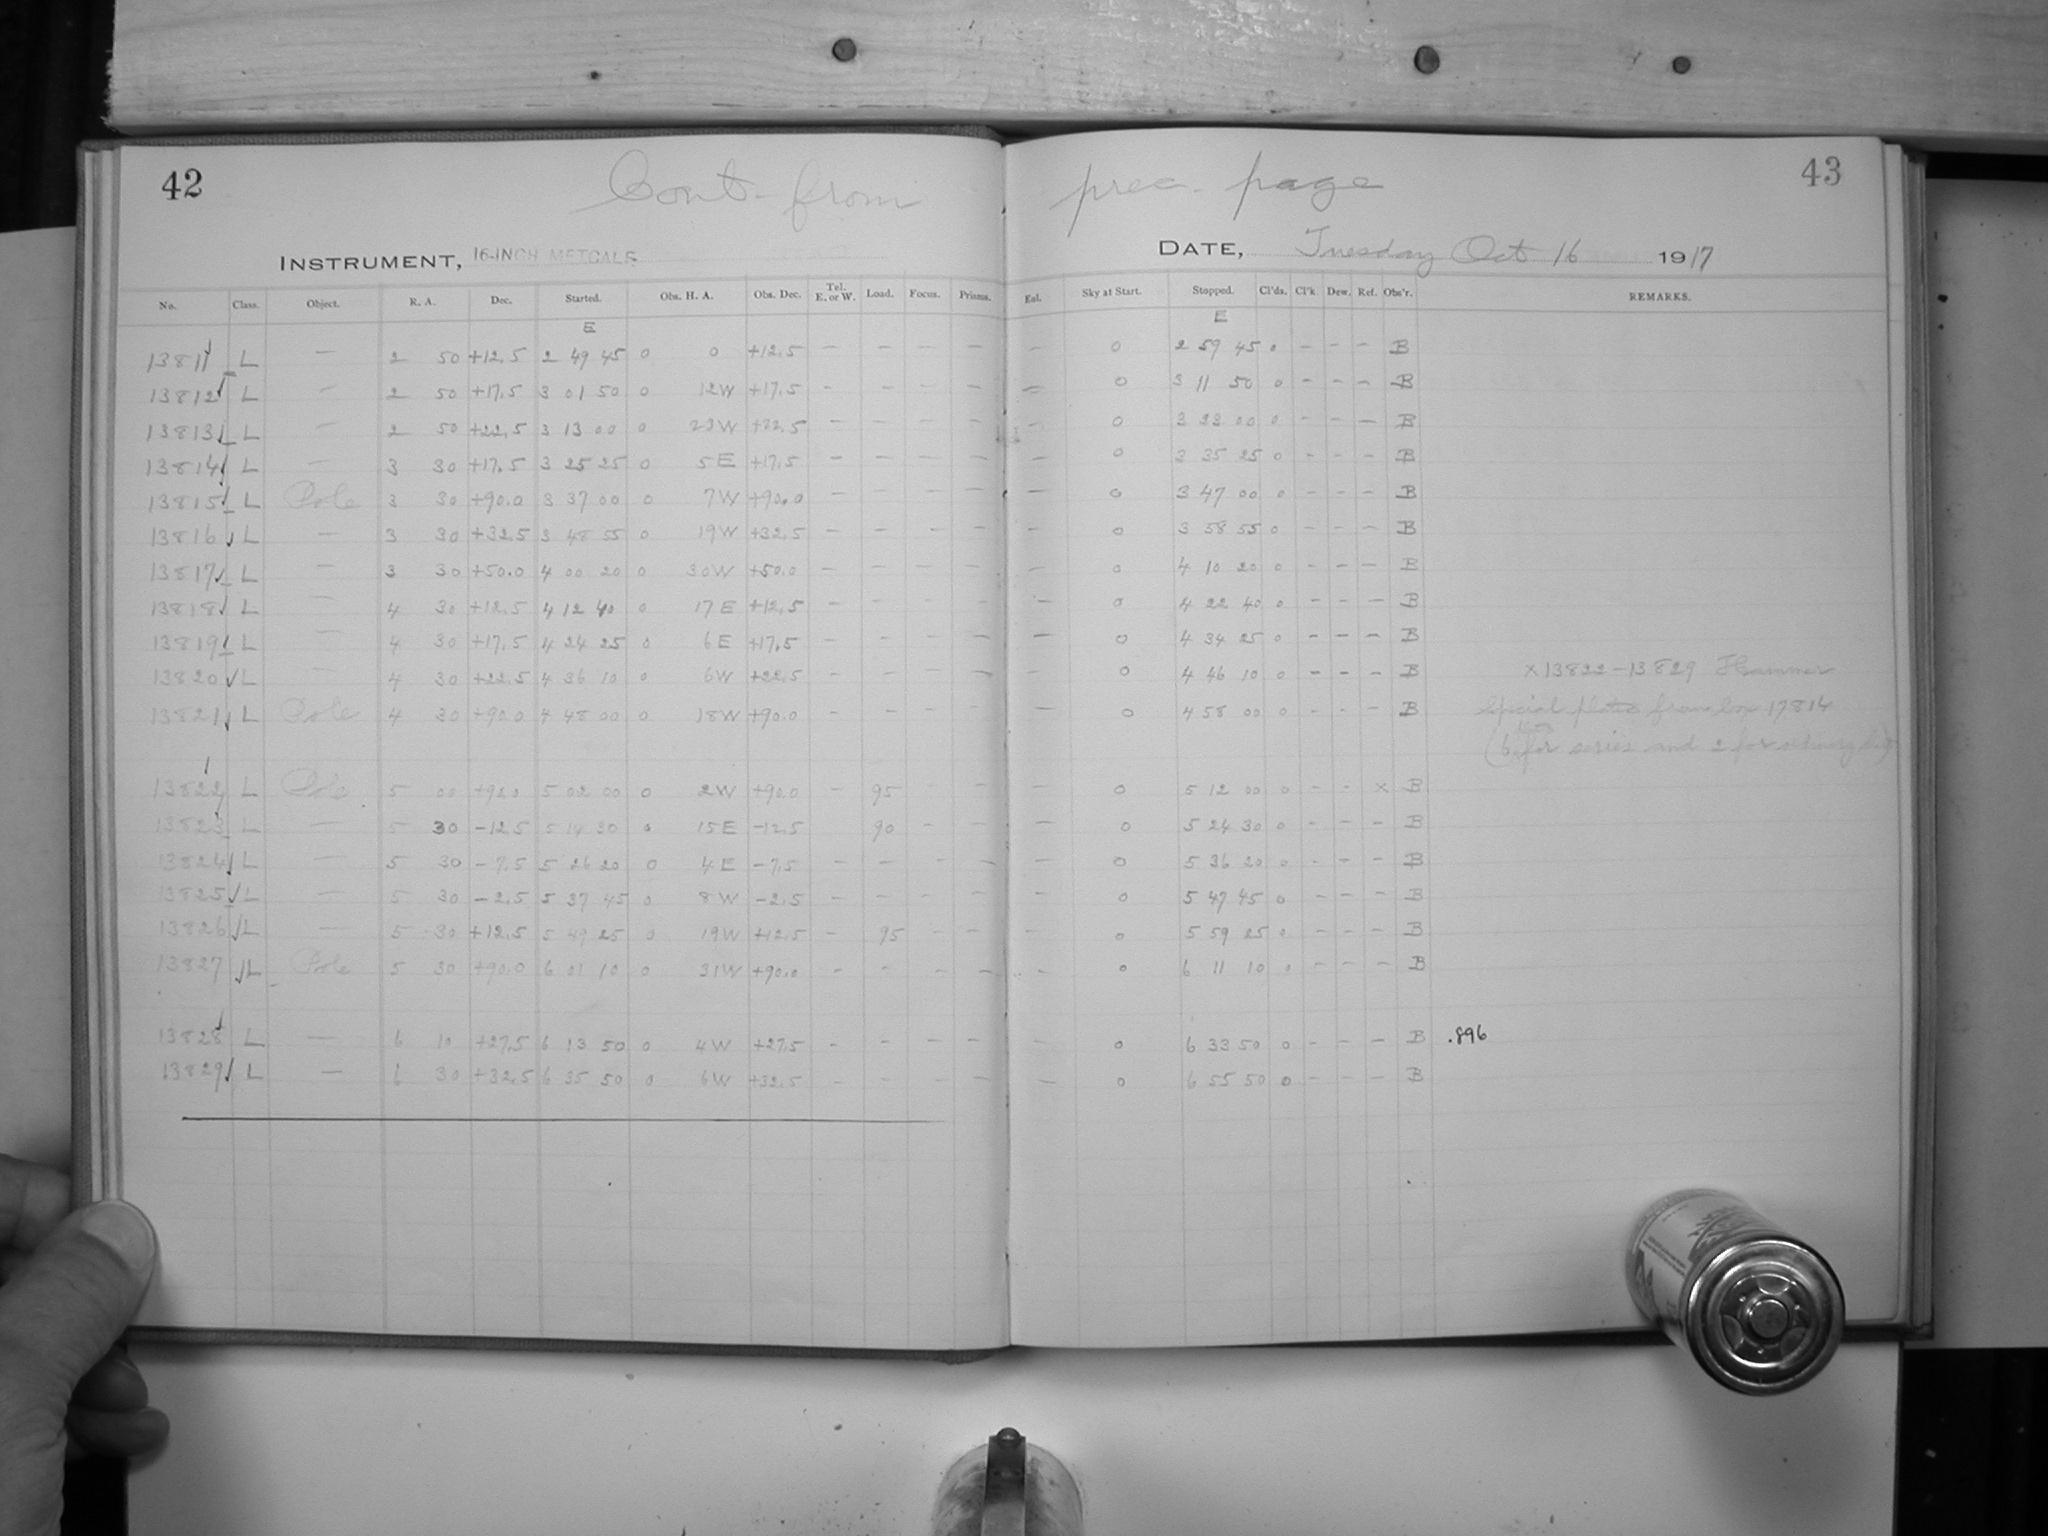 42
Cont. from prec. page
43
INSTRUMENT, 16-INCH METCALF
DATE, Tuesday Oct 16 1917
No. Class. Object. R. A. Dec. Started. Obs. H. A. Obs. Dec. Tel. E. or W. Load. Focus. Prisms. Eol. Sky at Start. Stopped. Cl'ds. Cl'k Dew. Ref. Obs'r. REMARKS.
E E
13811 L — 2 50 +12.5 2 49 45 0 0 +12.5 — — — — — 0 2 59 45 0 – – – B
13812 L — 2 50 +17.5 3 01 50 0 12W +17.5 – – – – — 0 3 11 50 0 – – – B
13813 L — 2 50 +22.5 3 13 00 0 23W +22.5 – – – – — 0 3 23 00 0 – – – B
13814 L — 3 30 +17.5 3 25 25 0 5E +17.5 – – – – — 0 3 35 25 0 – – – B
13815 L Pole 3 30 +90.0 3 37 00 0 7W +90.0 – – – – — 0 3 47 00 0 – – – B
13816 L — 3 30 +32.5 3 48 55 0 19W +32.5 – – – – — 0 3 58 55 0 – – – B
13817 L — 3 30 +50.0 4 00 20 0 30W +50.0 – – – – — 0 4 10 20 0 – – – B
13818 L — 4 30 +12.5 4 12 40 0 17E +12.5 – – – – — 0 4 22 40 0 – – – B
13819 L — 4 30 +17.5 4 24 25 0 6E +17.5 – – – – — 0 4 34 25 0 – – – B
13820 L — 4 30 +22.5 4 36 10 0 6W +22.5 – – – – — 0 4 46 10 0 – – – B x 13822–13829 Hammer
13821 L Pole 4 30 +90.0 4 48 00 0 18W +90.0 – – – – — 0 4 58 00 0 – – – B Special plates from box 17814
(6 for series and 2 for
13822 L Pole 5 00 +90.0 5 02 00 0 2W +90.0 – 95 – – – 0 5 12 00 0 – – x B
13823 L — 5 30 –12.5 5 14 30 0 15E –12.5 90 – – – 0 5 24 30 0 – – – B
13824 L — 5 30 –7.5 5 26 20 0 4E –7.5 – – – – — 0 5 36 20 0 – – – B
13825 L — 5 30 –2.5 5 37 45 0 8W –2.5 – – – – — 0 5 47 45 0 – – – B
13826 L — 5 30 +12.5 5 49 25 0 19W +12.5 – 95 – – – 0 5 59 25 0 – – – B
13827 L Pole 5 30 +90.0 6 01 10 0 31W +90.0 – – – – — 0 6 11 10 0 – – – B
13828 L — 6 10 +27.5 6 13 50 0 4W +27.5 – – – – – 0 6 33 50 0 – – – B .896
13829 L — 6 30 +32.5 6 35 50 0 6W +32.5 – – – – — 0 6 55 50 0 – – – B